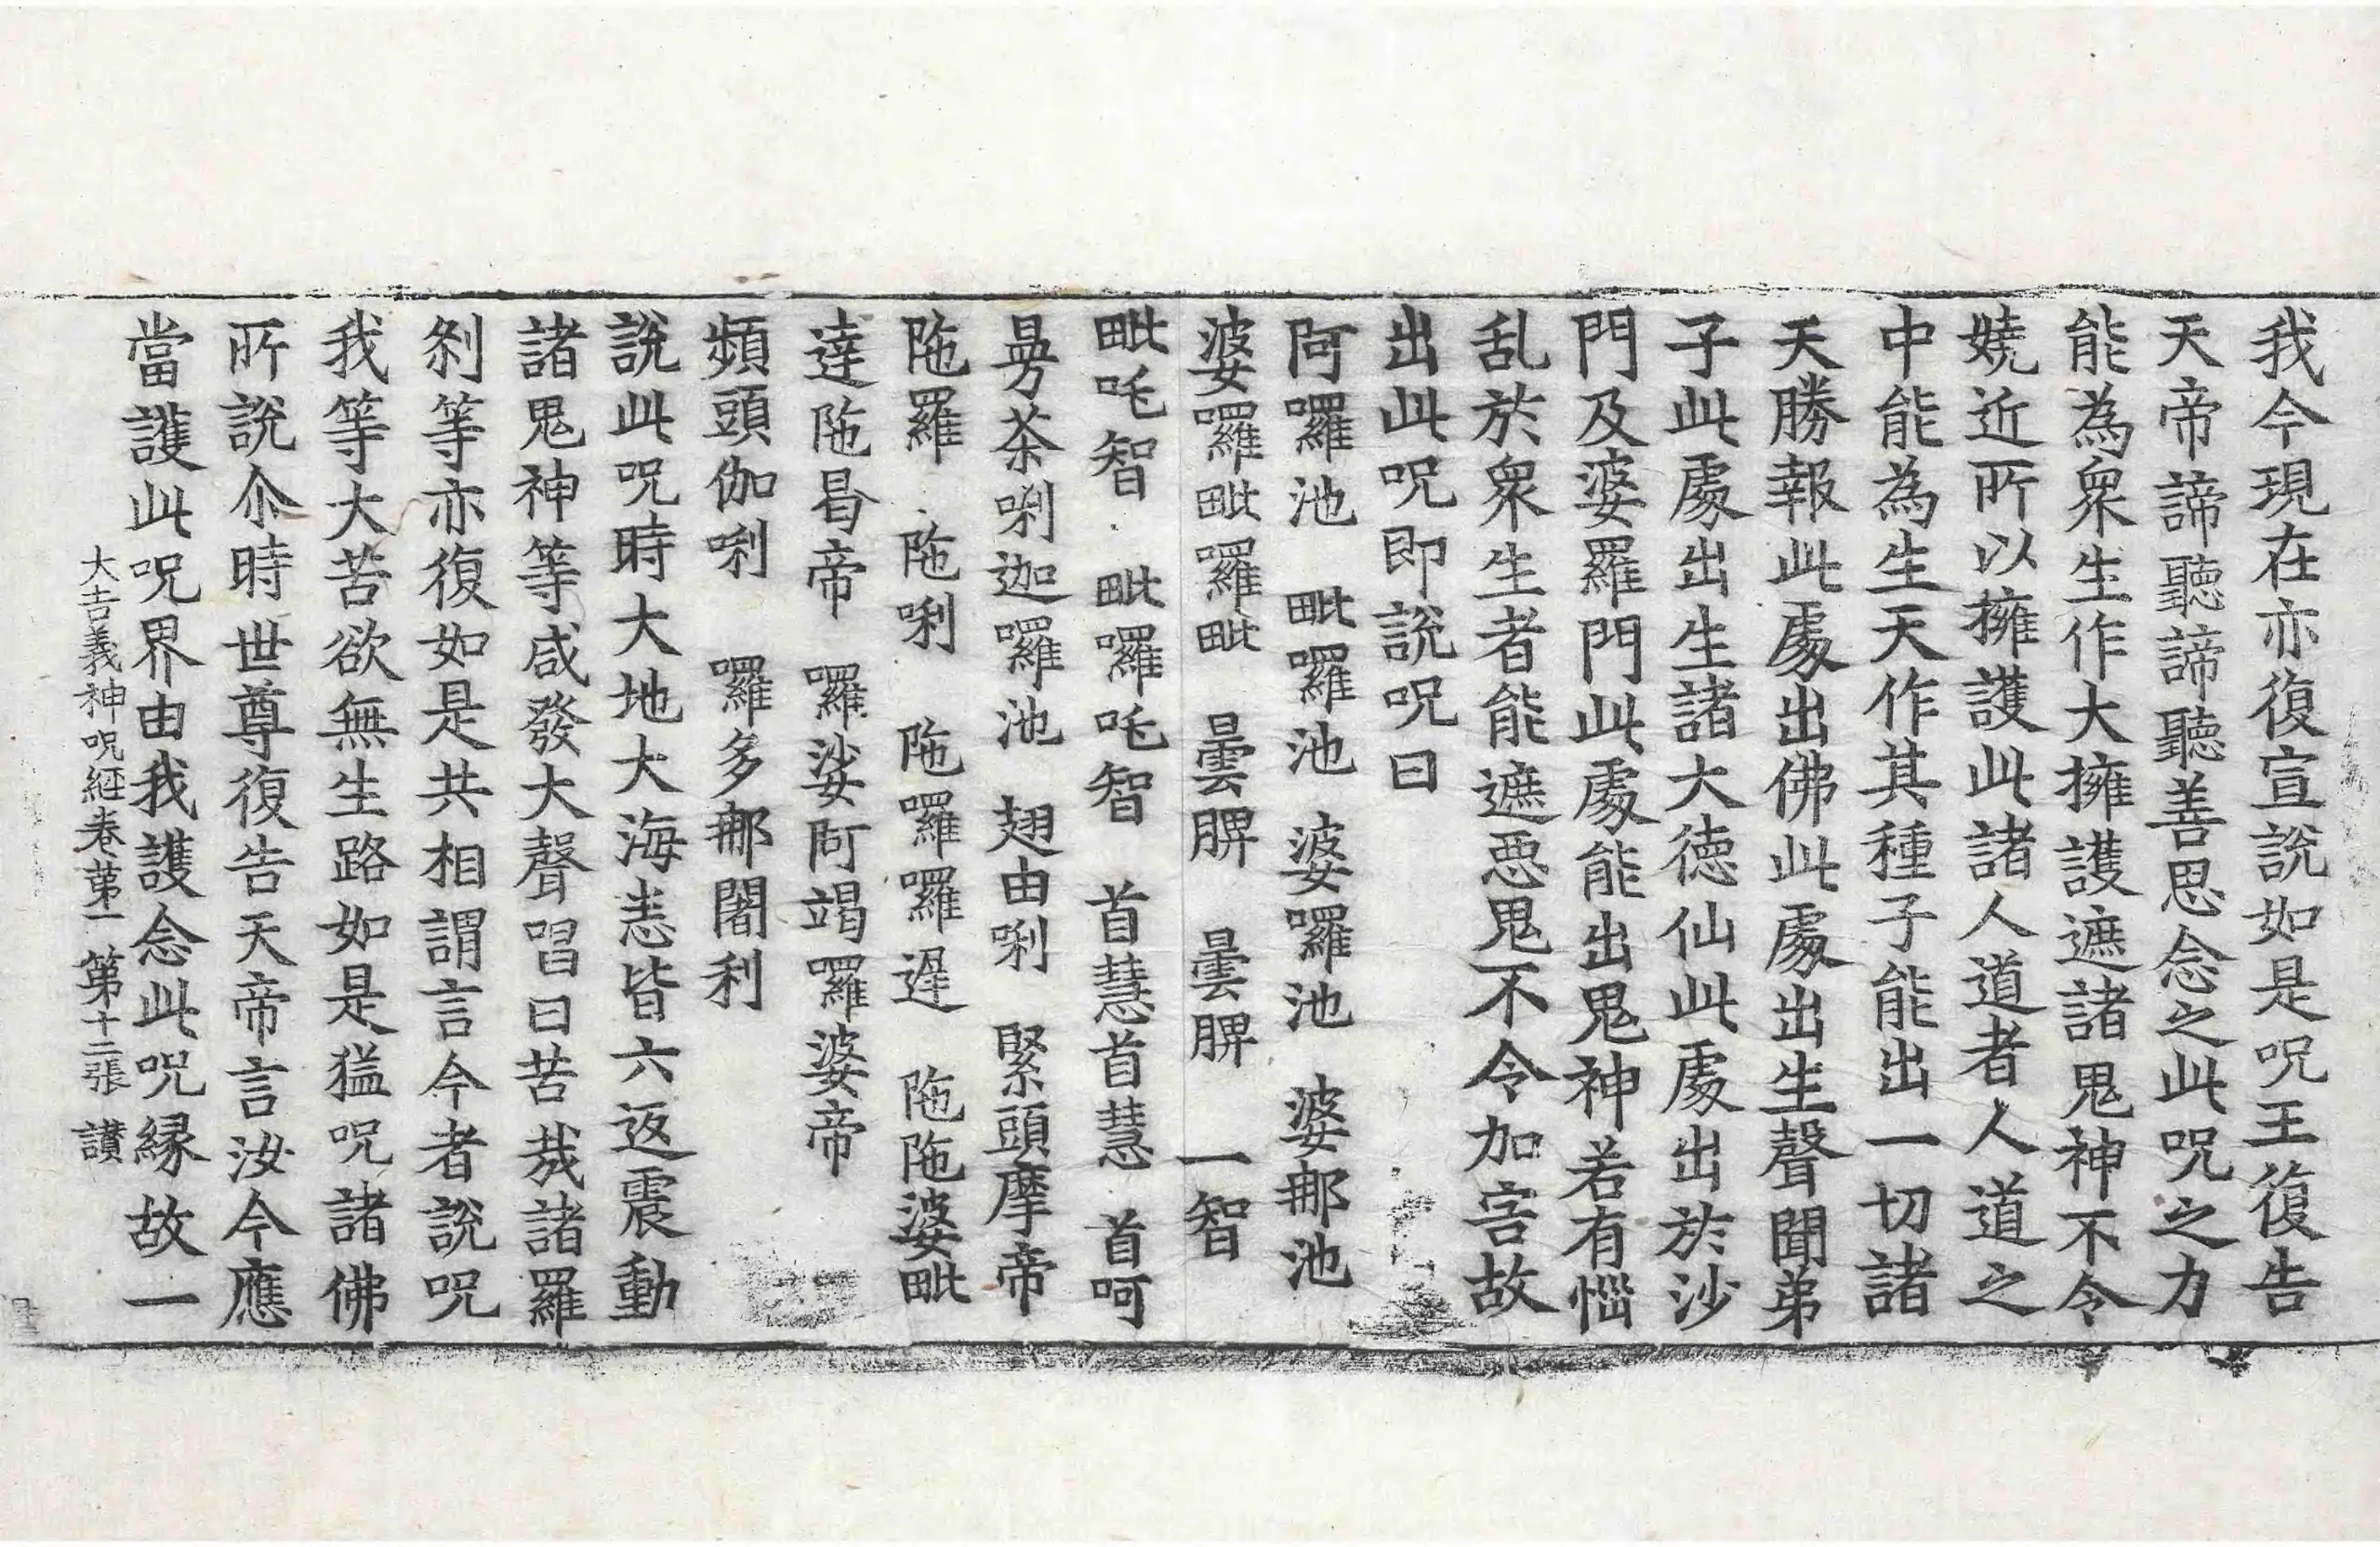 我今現在亦復宣說如是呪王復告
天帝諦聽諦聽善思念之此呪之力
能為衆生作大擁護遮諸鬼神不令
嬈近所以擁護此諸人道者人道之
中能為生天作其種子能出一切諸
天勝報此處出佛此處出生聲聞弟
子此處出生諸大德仙此處出於沙
門及婆羅門此處能出鬼神若有惱
乱於衆生者能遮惡鬼不令加害故
出此呪即說呪曰
阿囉池　毗囉池　婆囉池　婆那池
婆囉毗囉毗　曇脾　曇脾　一智
毗吒智　毗囉吒智　首慧首慧　首呵
㫰茶唎迦囉池　翅由唎　緊頭摩帝
陁羅　陁唎　陁囉囉遅　陁陁婆毗
達陁曷帝　囉娑阿竭囉婆帝
頻頭伽唎　囉多那闍利
說此呪時大地大海悉皆六返震動
諸鬼神等咸發大聲唱曰苦㢤諸羅
刹等亦復如是共相謂言今者說呪
我等大苦欲無生路如是猛呪諸佛
所說尒時世尊復告天帝言汝今應
當護此呪界由我護念此呪縁故一
大吉義神呪經卷第一　第十二張　讃